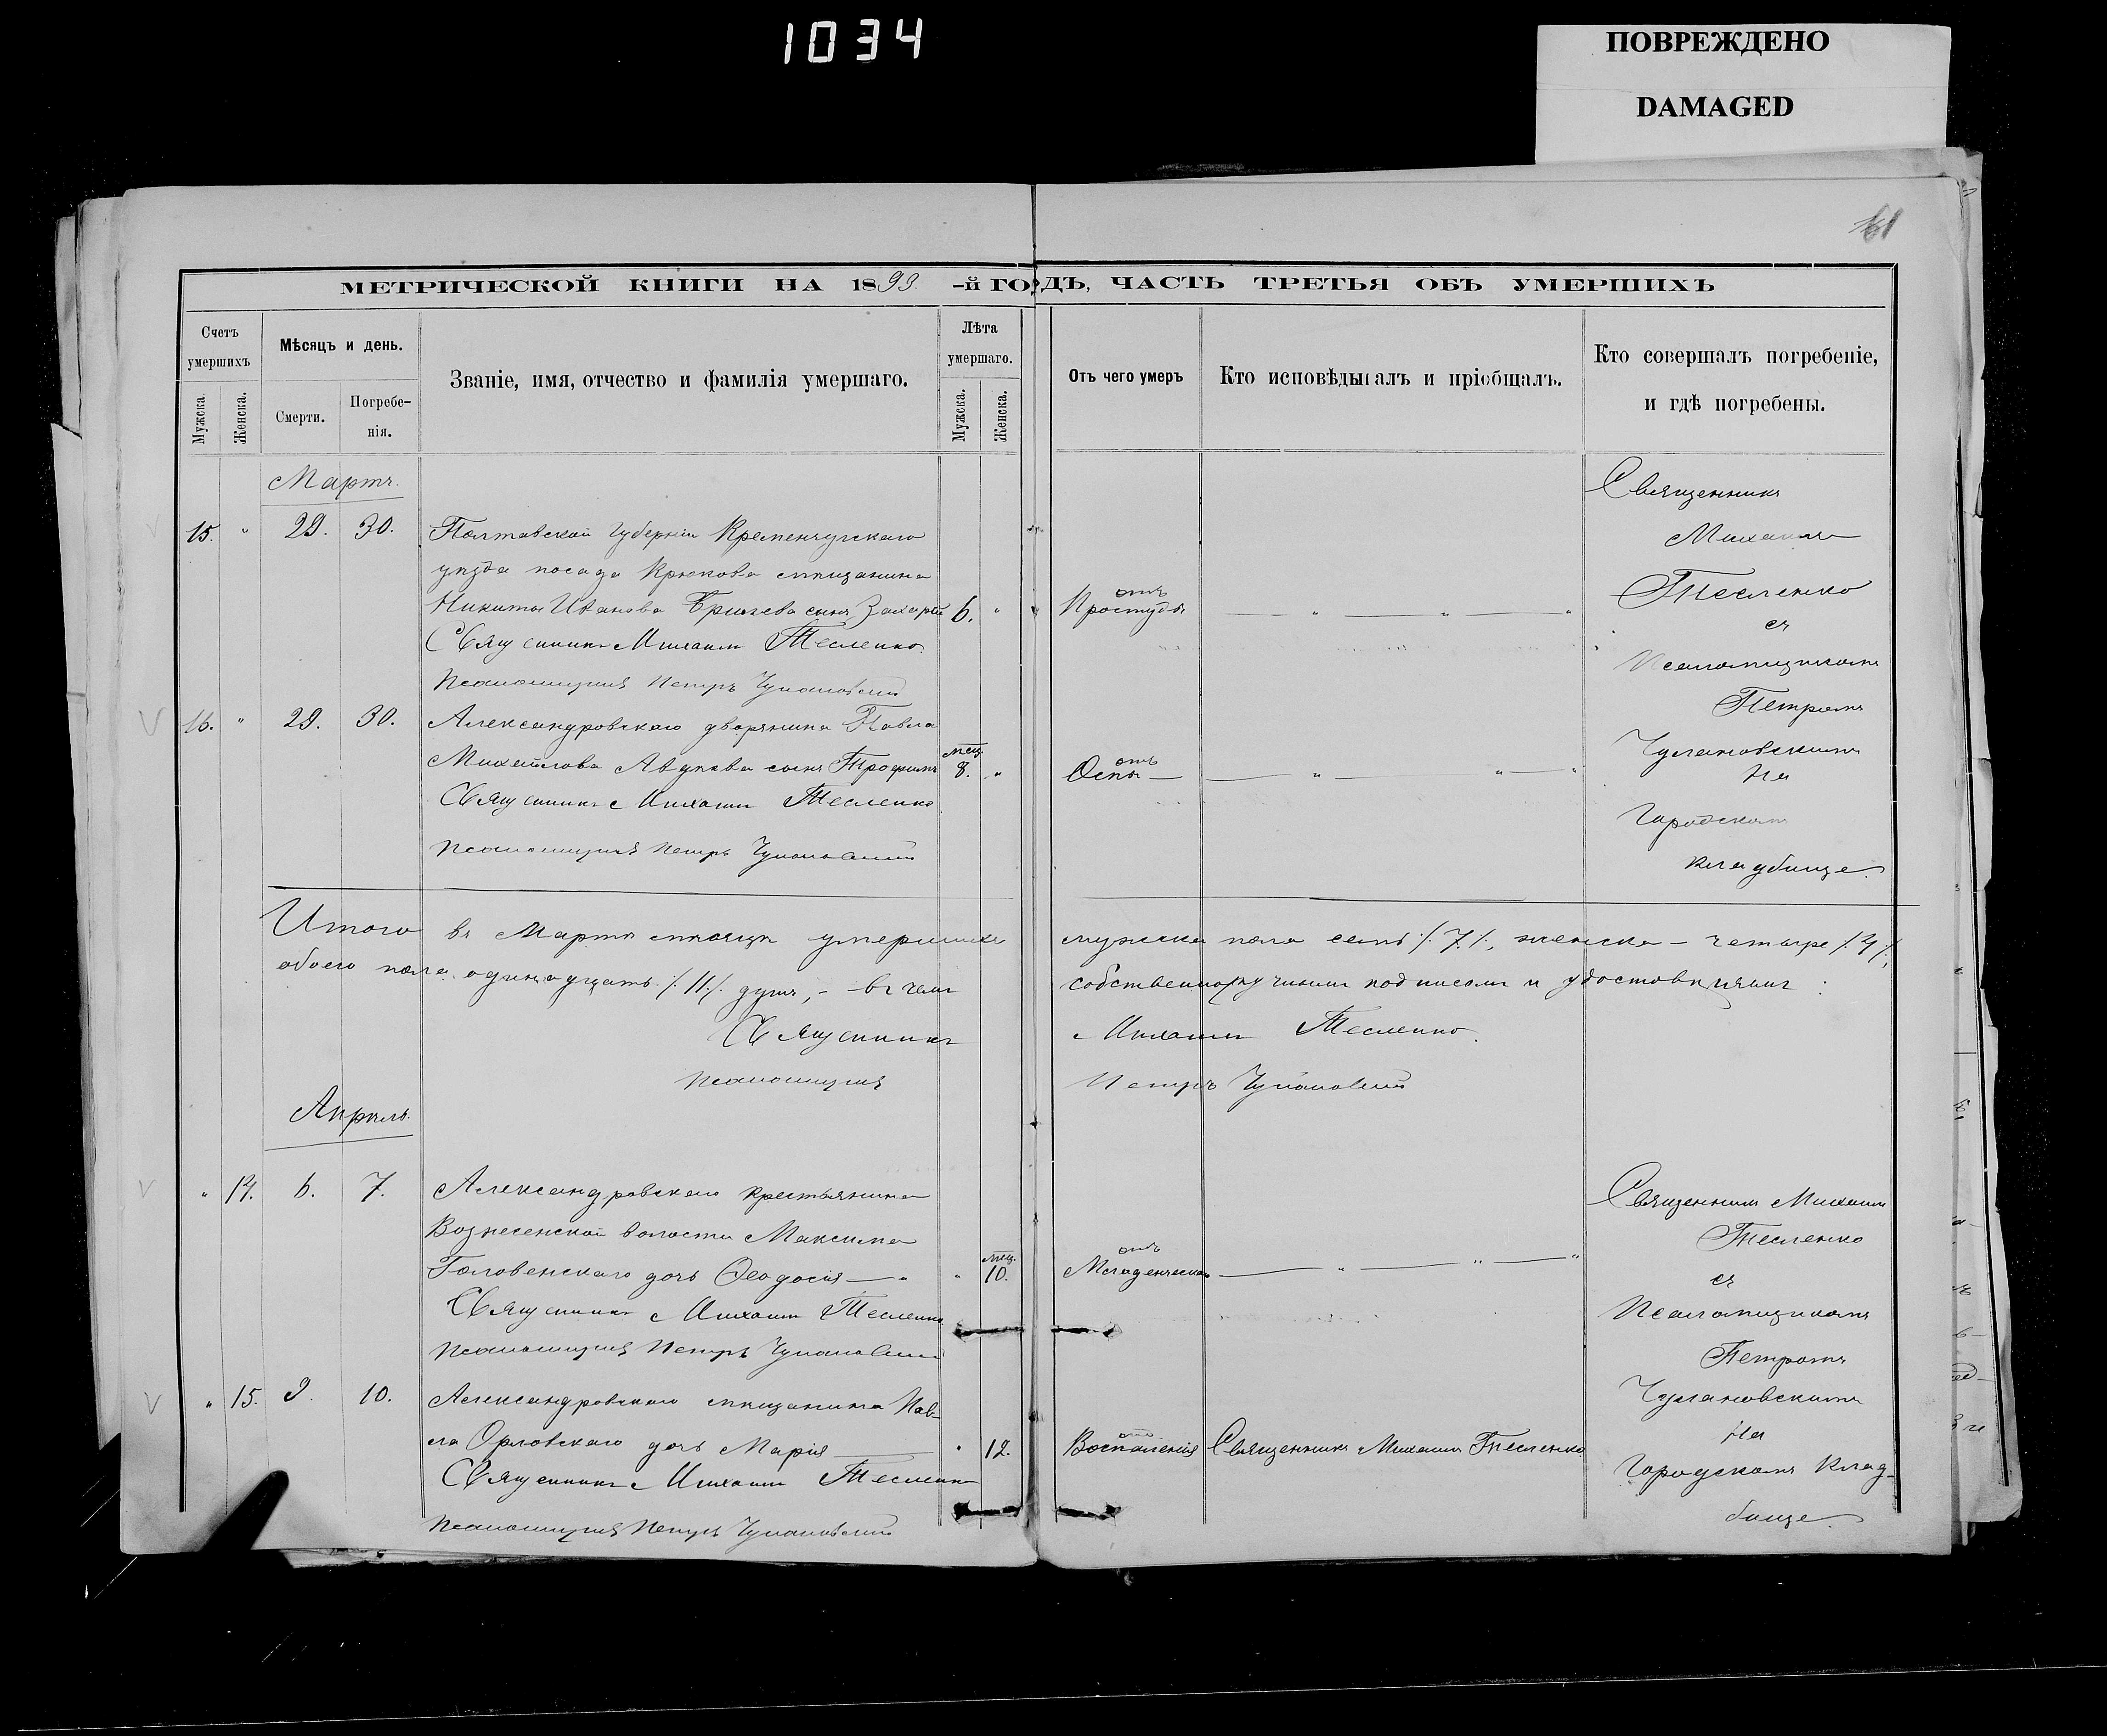 1034
ПОВРЕЖДЕНО
DAMAGED
МЕТРИЧЕСКОЙ КНИГИ НА 1893-й ГОДЪ, ЧАСТЬ ТРЕТЬЯ ОБЪ УМЕРШИХЪ
Счетъ умершихъ
Мужска.
Женска.
Мѣсяцъ и день.
Смерти.
Погребе-
нія.
Званіе, имя, отчество и фамилія умершаго.
Лѣта умершаго.
Мужска.
Женска.
Отъ чего умеръ
Кто исповѣдывалъ и пріобщалъ.
Кто совершалъ погребеніе,
и гдѣ погребены.
Мартъ.
15. " 29. 30. Полтавской губерніи Кременчугскаго
уѣзда посада Крюкова мѣщанина
Никиты Иванова сынъ Захарій 6. "
отъ
Простуды
Священникъ Михаилъ Тесленко
Псаломщикъ Петръ Чулановскій
Священникъ
Михаилъ
Тесленко
съ
Псаломщикомъ
Петромъ
Чулановскимъ
На
Городскомъ
кладбище.
16. " 29. 30. Александровскаго дворянина Павла
Михайлова сынъ Трофимъ мец. 8. "
отъ
Оспы
Священникъ Михаилъ Тесленко
Псаломщикъ Петръ Чулановскій
Итого въ Мартѣ мѣсяцѣ умершихъ мужска пола семь /. 7 ./, женска – четыре /. 4 ./,
обоего пола одинадцать /. 11 ./. душъ, – въ чемъ собственноручнымъ подписомъ и удостовѣряемъ:
Священникъ Михаилъ Тесленко.
Псаломщикъ Петръ Чулановскій
Апрѣль.
" 14. 6. 7. Александровскаго крестьянина
Вознесенской волости Максима
Головенскаго дочь Ѳеодосія " мец. 10.
отъ
Младенческой
Священникъ Михаилъ Тесленко
Псаломщикъ Петръ Чулановскій
Священникъ Михаилъ
Тесленко
съ
Псаломщикомъ
Петромъ
Чулановскимъ
На
Городскомъ Клад-
бище.
" 15. 9. 10. Александровскаго мѣщанина Пав-
ла Орловскаго дочь Марія " 12.
отъ
Воспаленія Священникъ Михаилъ Тесленко
Священникъ Михаилъ Тесленко
Псаломщикъ Петръ Чулановскій